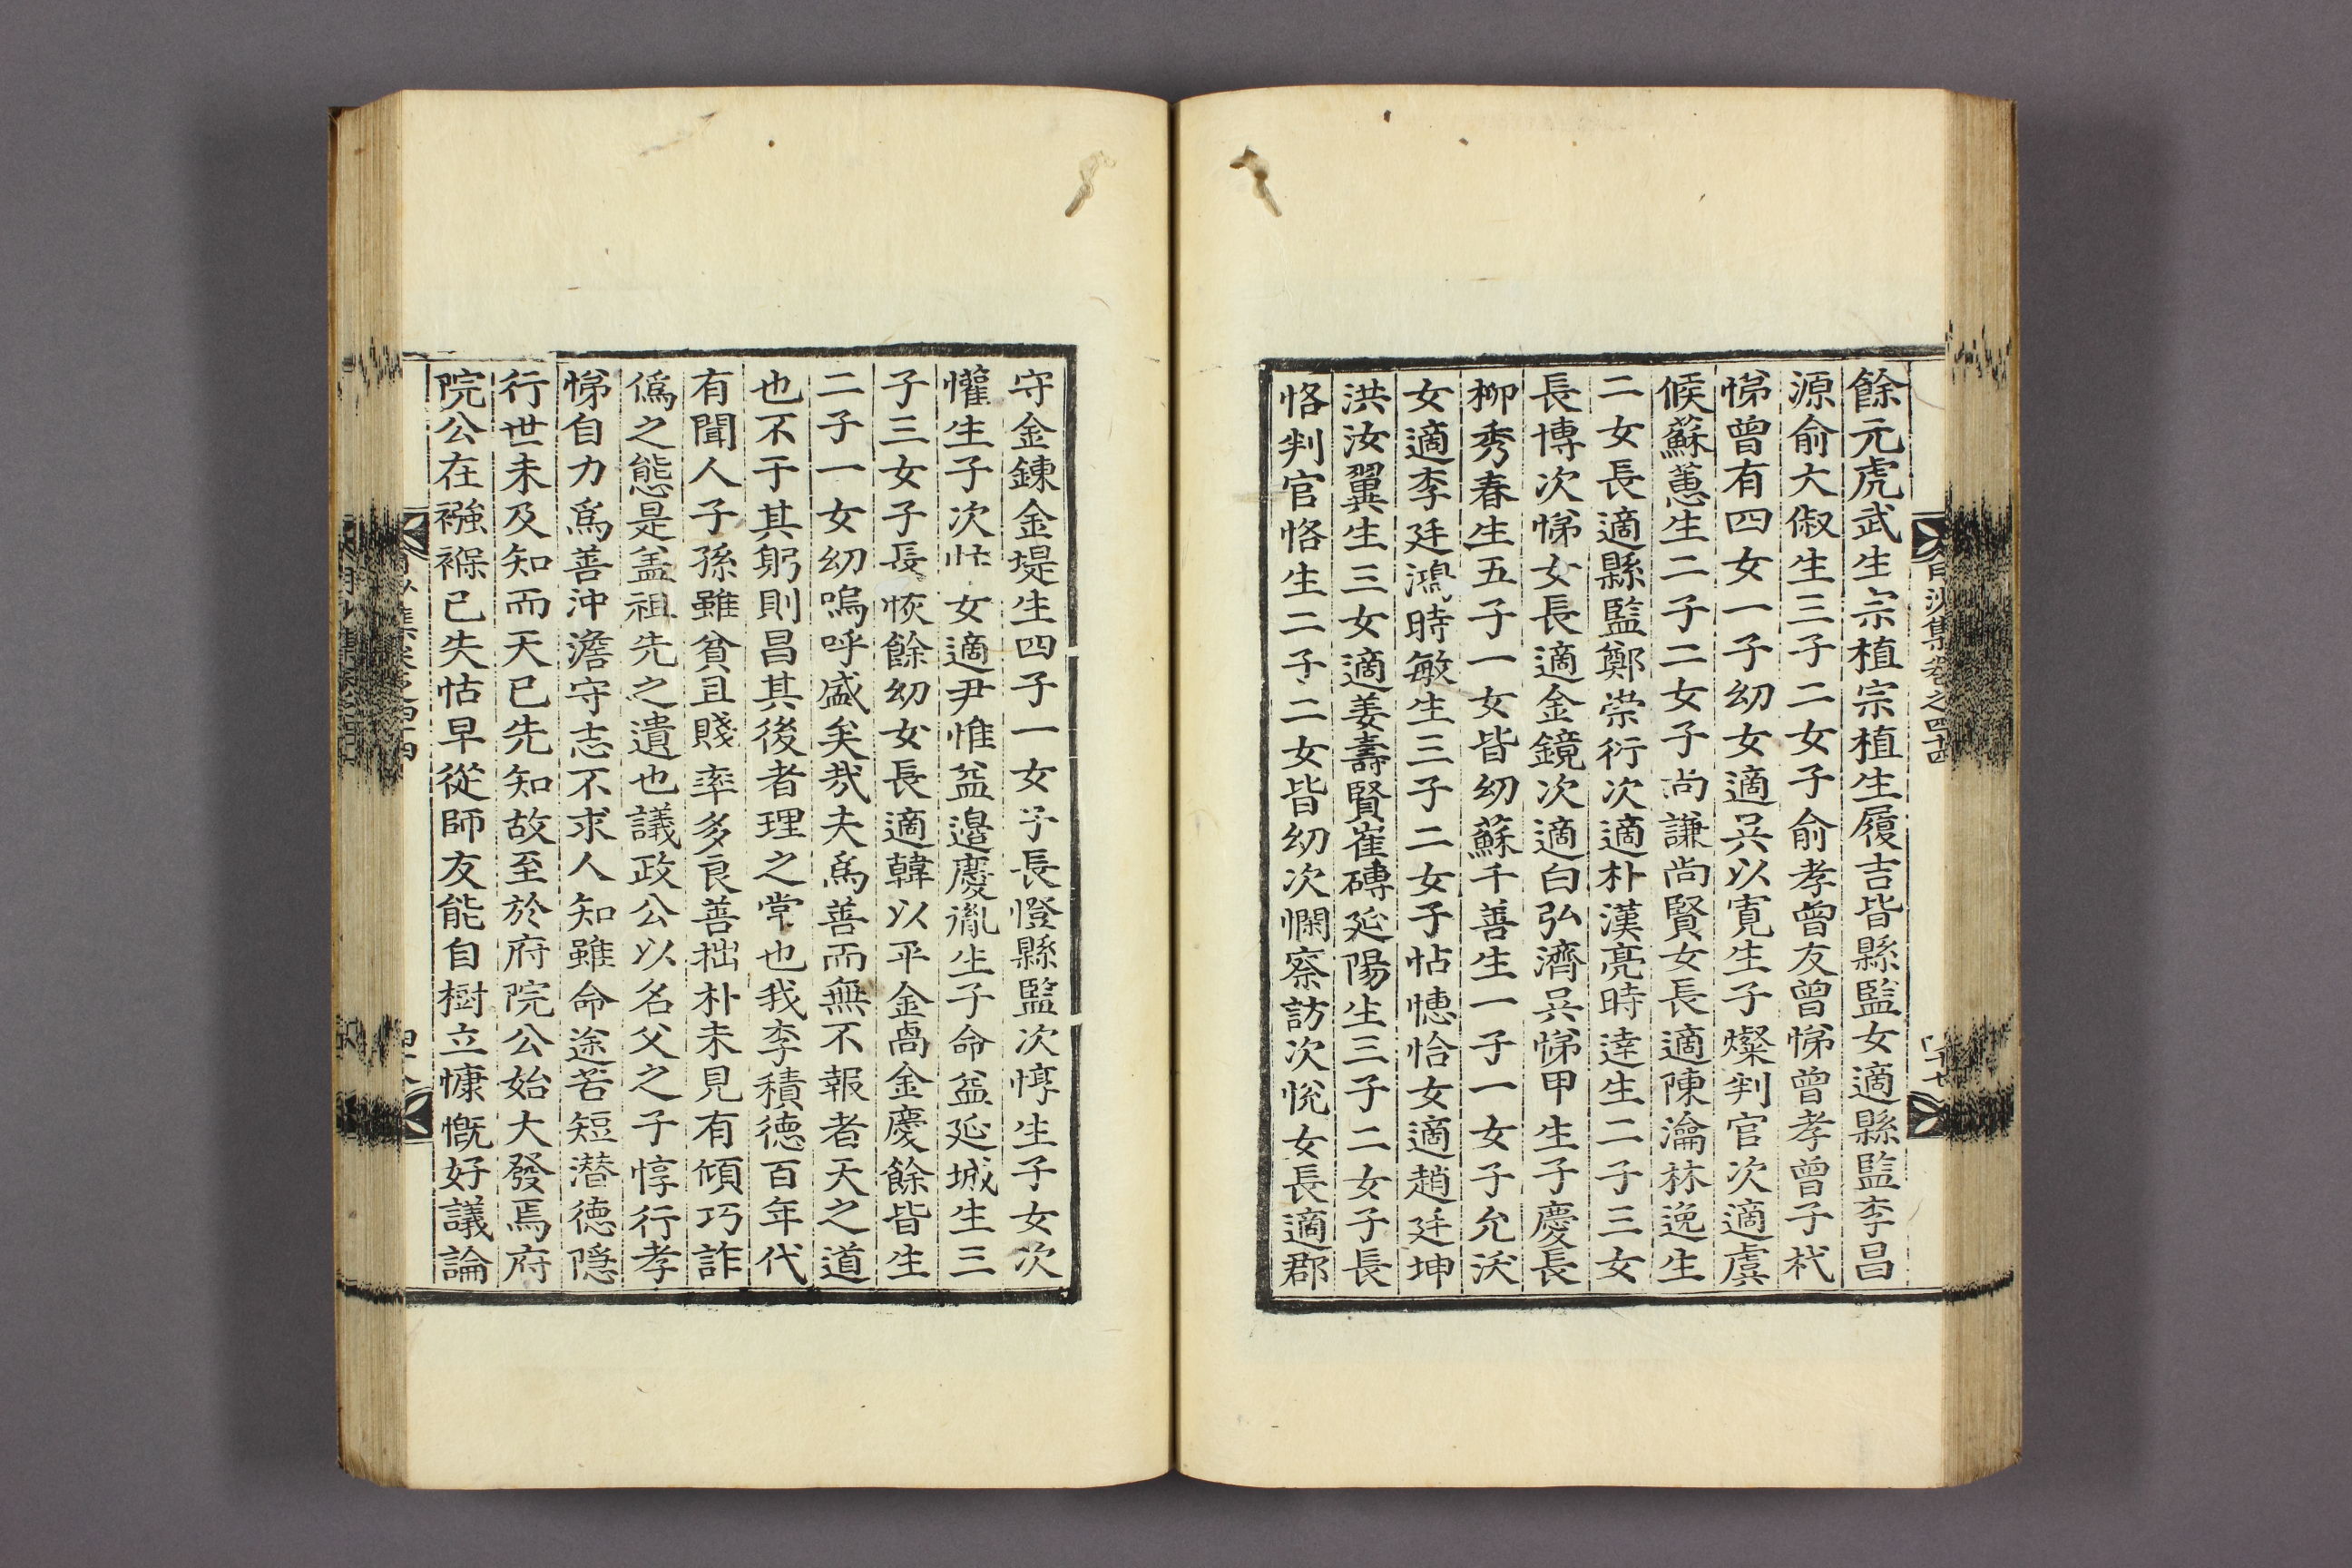 餘元虎武生宗植宗植生履吉皆縣監女適縣監李昌
源俞大俶生三子二女子俞孝曾友曾悌曾孝曾子杙
悌曾有四女一子幼女適吳以寬生子燦判官次適虞
候蘇蕙生二子二女子尚謙尚賢女長適陳瀹林逸生
二女長適縣監鄭崇衍次適朴漢亮時達生二子三女
長博次悌女長適金鏡次適白弘濟吳悌甲生子慶長
柳秀春生五子一女皆幼蘇千善生一子一女子允沃
女適李廷鴻時敏生三子二女子怗憓恰女適趙廷坤
洪汝翼生三女適姜壽賢崔磚延陽生三子二女子長
恪判官恪生二子二女皆幼次憪察訪次悅女長適郡
守金鍊金堤生四子一女子長憕縣監次惇生子女次
懽生子次忹女適尹惟益邉慶胤生子命益延城生三
子三女子長恢餘幼女長適韓以平金卨金慶餘皆生
二子一女幼嗚呼盛矣㢤夫爲善而無不報者天之道
也不于其躬則昌其後者理之常也我李積德百年代
有聞人子孫雖貧且賤率多良善拙朴未見有傾巧詐
僞之態是盖祖先之遺也議政公以名父之子惇行孝
悌自力爲善沖澹守志不求人知雖命途苦短潛德隱
行世未及知而天已先知故至於府院公始大發焉府
院公在襁褓已失怙早從師友能自樹立慷慨好議論